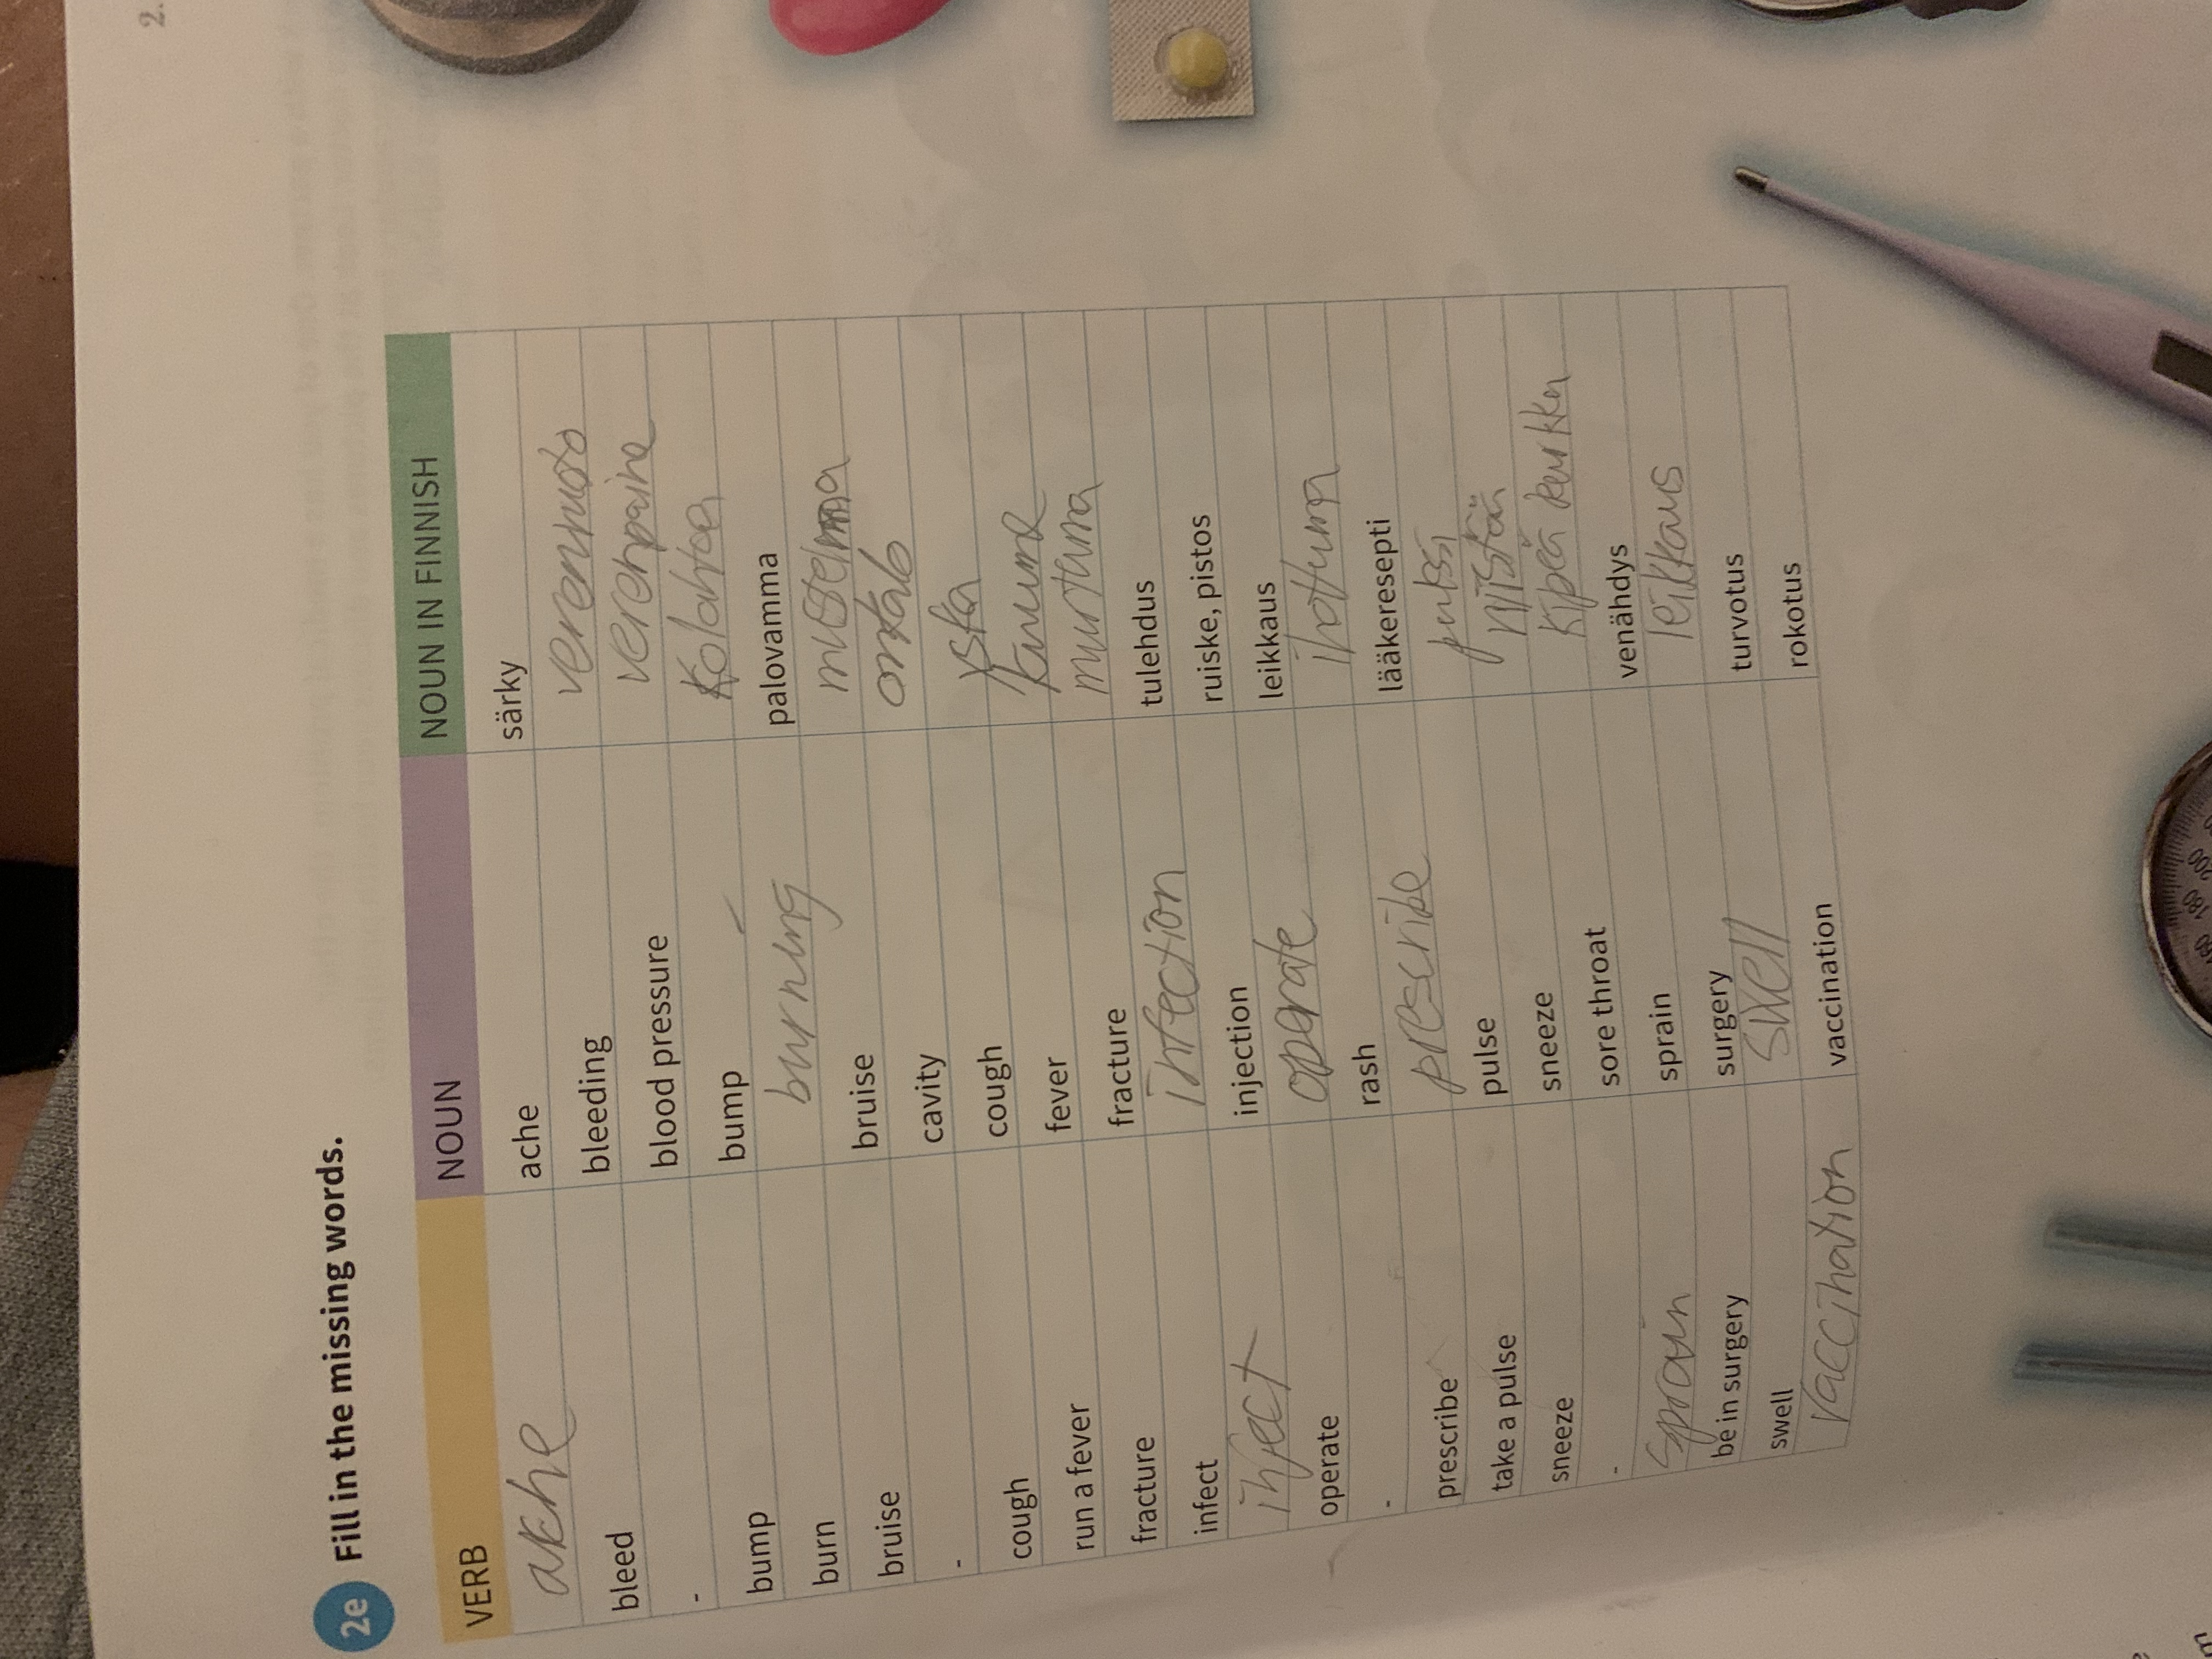 2.
2e Fill in the missing words.
VERB NOUN NOUN IN FINNISH
akhe ache särky
bleed bleeding verenvuoto
- blood pressure verenpaine
bump bump Kolahtaa
burn burning palovamma
bruise bruise mustelma
- cavity onkalo
cough cough yskä
run a fever fever kuume
fracture fracture murtuma
infect infection tulehdus
inject injection ruiske, pistos
operate operate leikkaus
- rash ihottuma
prescribe prescribe lääkeresepti
take a pulse pulse pulssi
sneeze sneeze niistää
- sore throat kipeä kurkku
sprain sprain venähdys
be in surgery surgery leikkaus
swell swell turvotus
vaccination vaccination rokotus
180
200